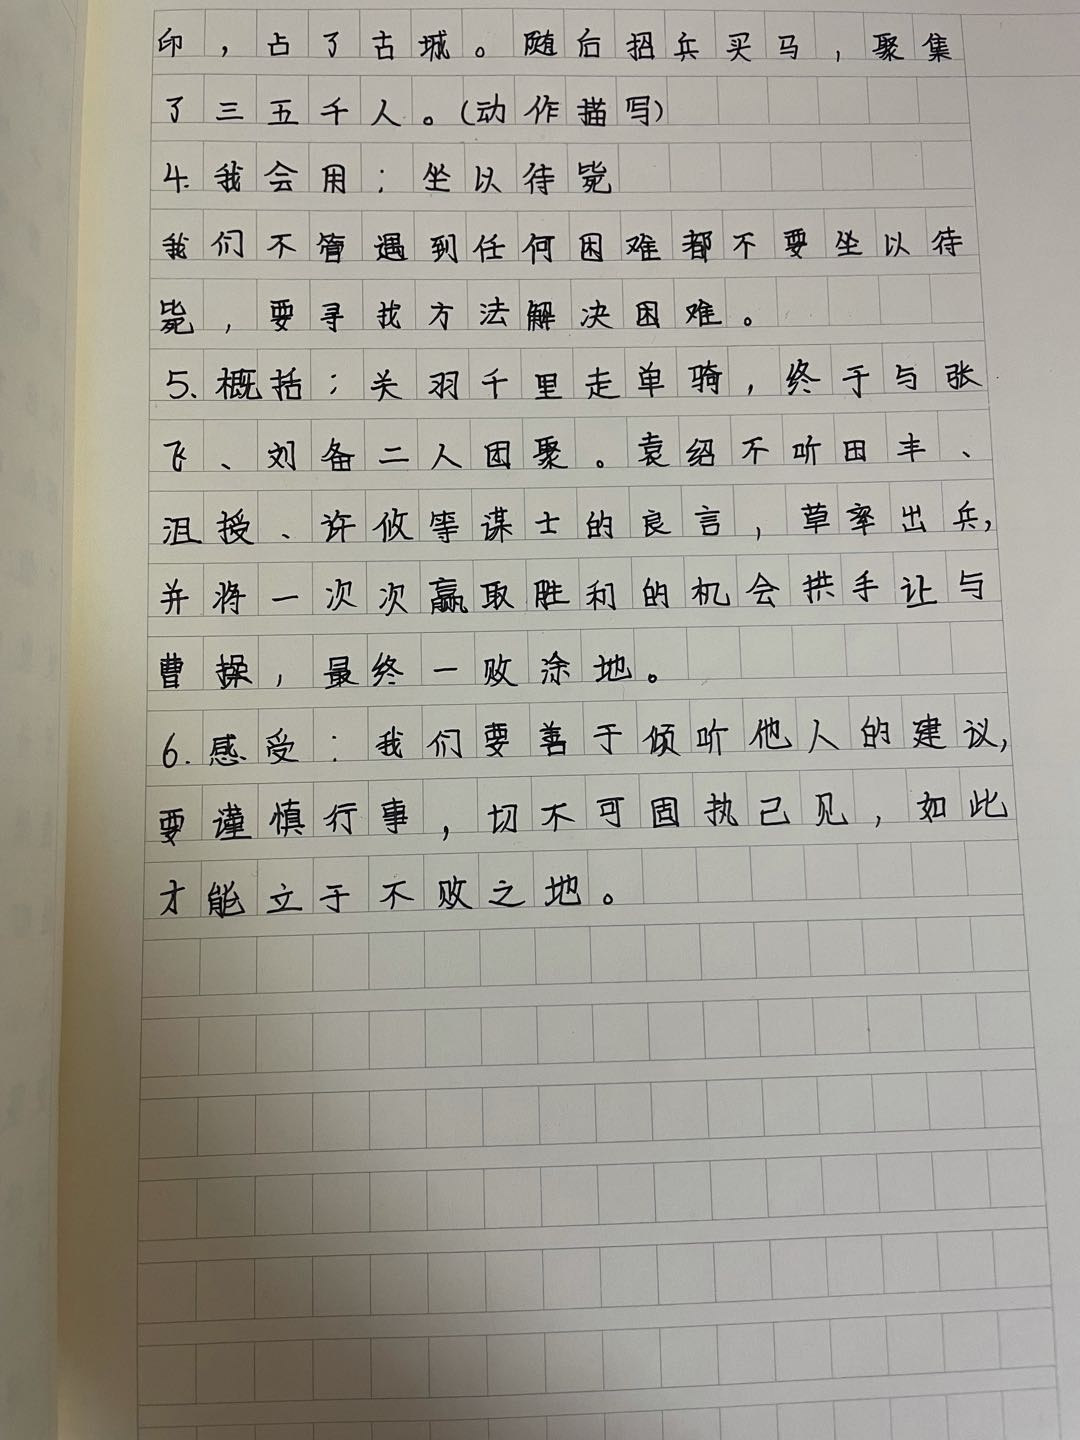 印，占了古城。随后招兵买马，聚集
了三五千人。(动作描写)
4.我会用：坐以待毙
我们不管遇到任何困难都不要坐以待
毙，要寻找方法解决困难。
5.概括：关羽千里走单骑，终于与张
飞、刘备二人团聚。袁绍不听田丰、
沮授、许攸等谋士的良言，草率出兵,
并将一次次赢取胜利的机会拱手让与
曹操，最终一败涂地。
6.感受：我们要善于倾听他人的建议,
要谨慎行事，切不可固执己见，如此
才能立于不败之地。